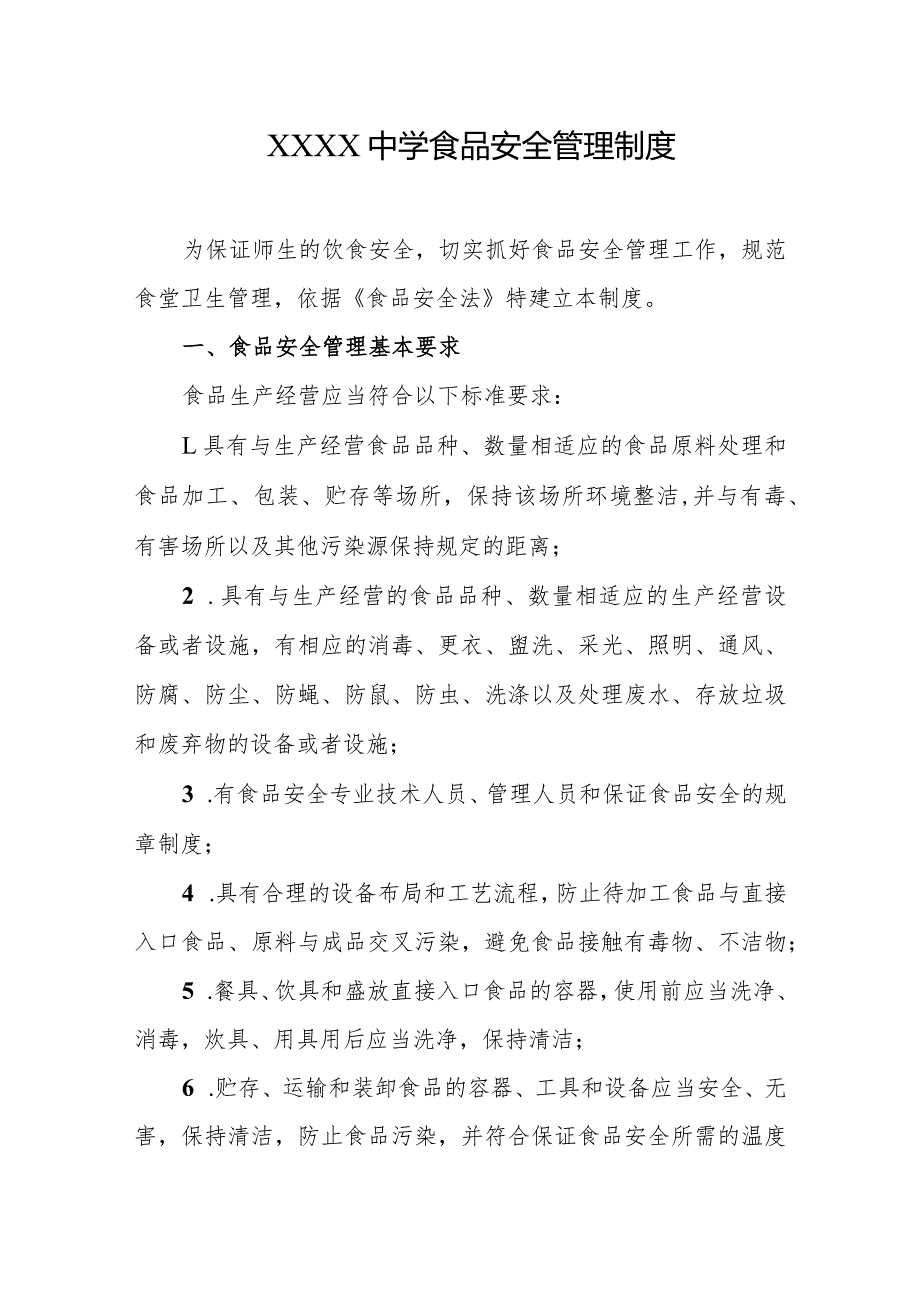 XXXX 中学食品安全管理制度
为保证师生的饮食安全，切实抓好食品安全管理工作，规范
食堂卫生管理，依据《食品安全法》特建立本制度。
一、食品安全管理基本要求
食品生产经营应当符合以下标准要求：
L具有与生产经营食品品种、数量相适应的食品原料处理和
食品加工、包装、贮存等场所，保持该场所环境整洁,并与有毒、
有害场所以及其他污染源保持规定的距离；
2 .具有与生产经营的食品品种、数量相适应的生产经营设
备或者设施，有相应的消毒、更衣、盥洗、采光、照明、通风、
防腐、防尘、防蝇、防鼠、防虫、洗涤以及处理废水、存放垃圾
和废弃物的设备或者设施；
3 .有食品安全专业技术人员、管理人员和保证食品安全的规
章制度；
4 .具有合理的设备布局和工艺流程,防止待加工食品与直接
入口食品、原料与成品交叉污染，避免食品接触有毒物、不洁物；
5 .餐具、饮具和盛放直接入口食品的容器,使用前应当洗净、
消毒，炊具、用具用后应当洗净，保持清洁；
6 .贮存、运输和装卸食品的容器、工具和设备应当安全、无
害，保持清洁，防止食品污染，并符合保证食品安全所需的温度